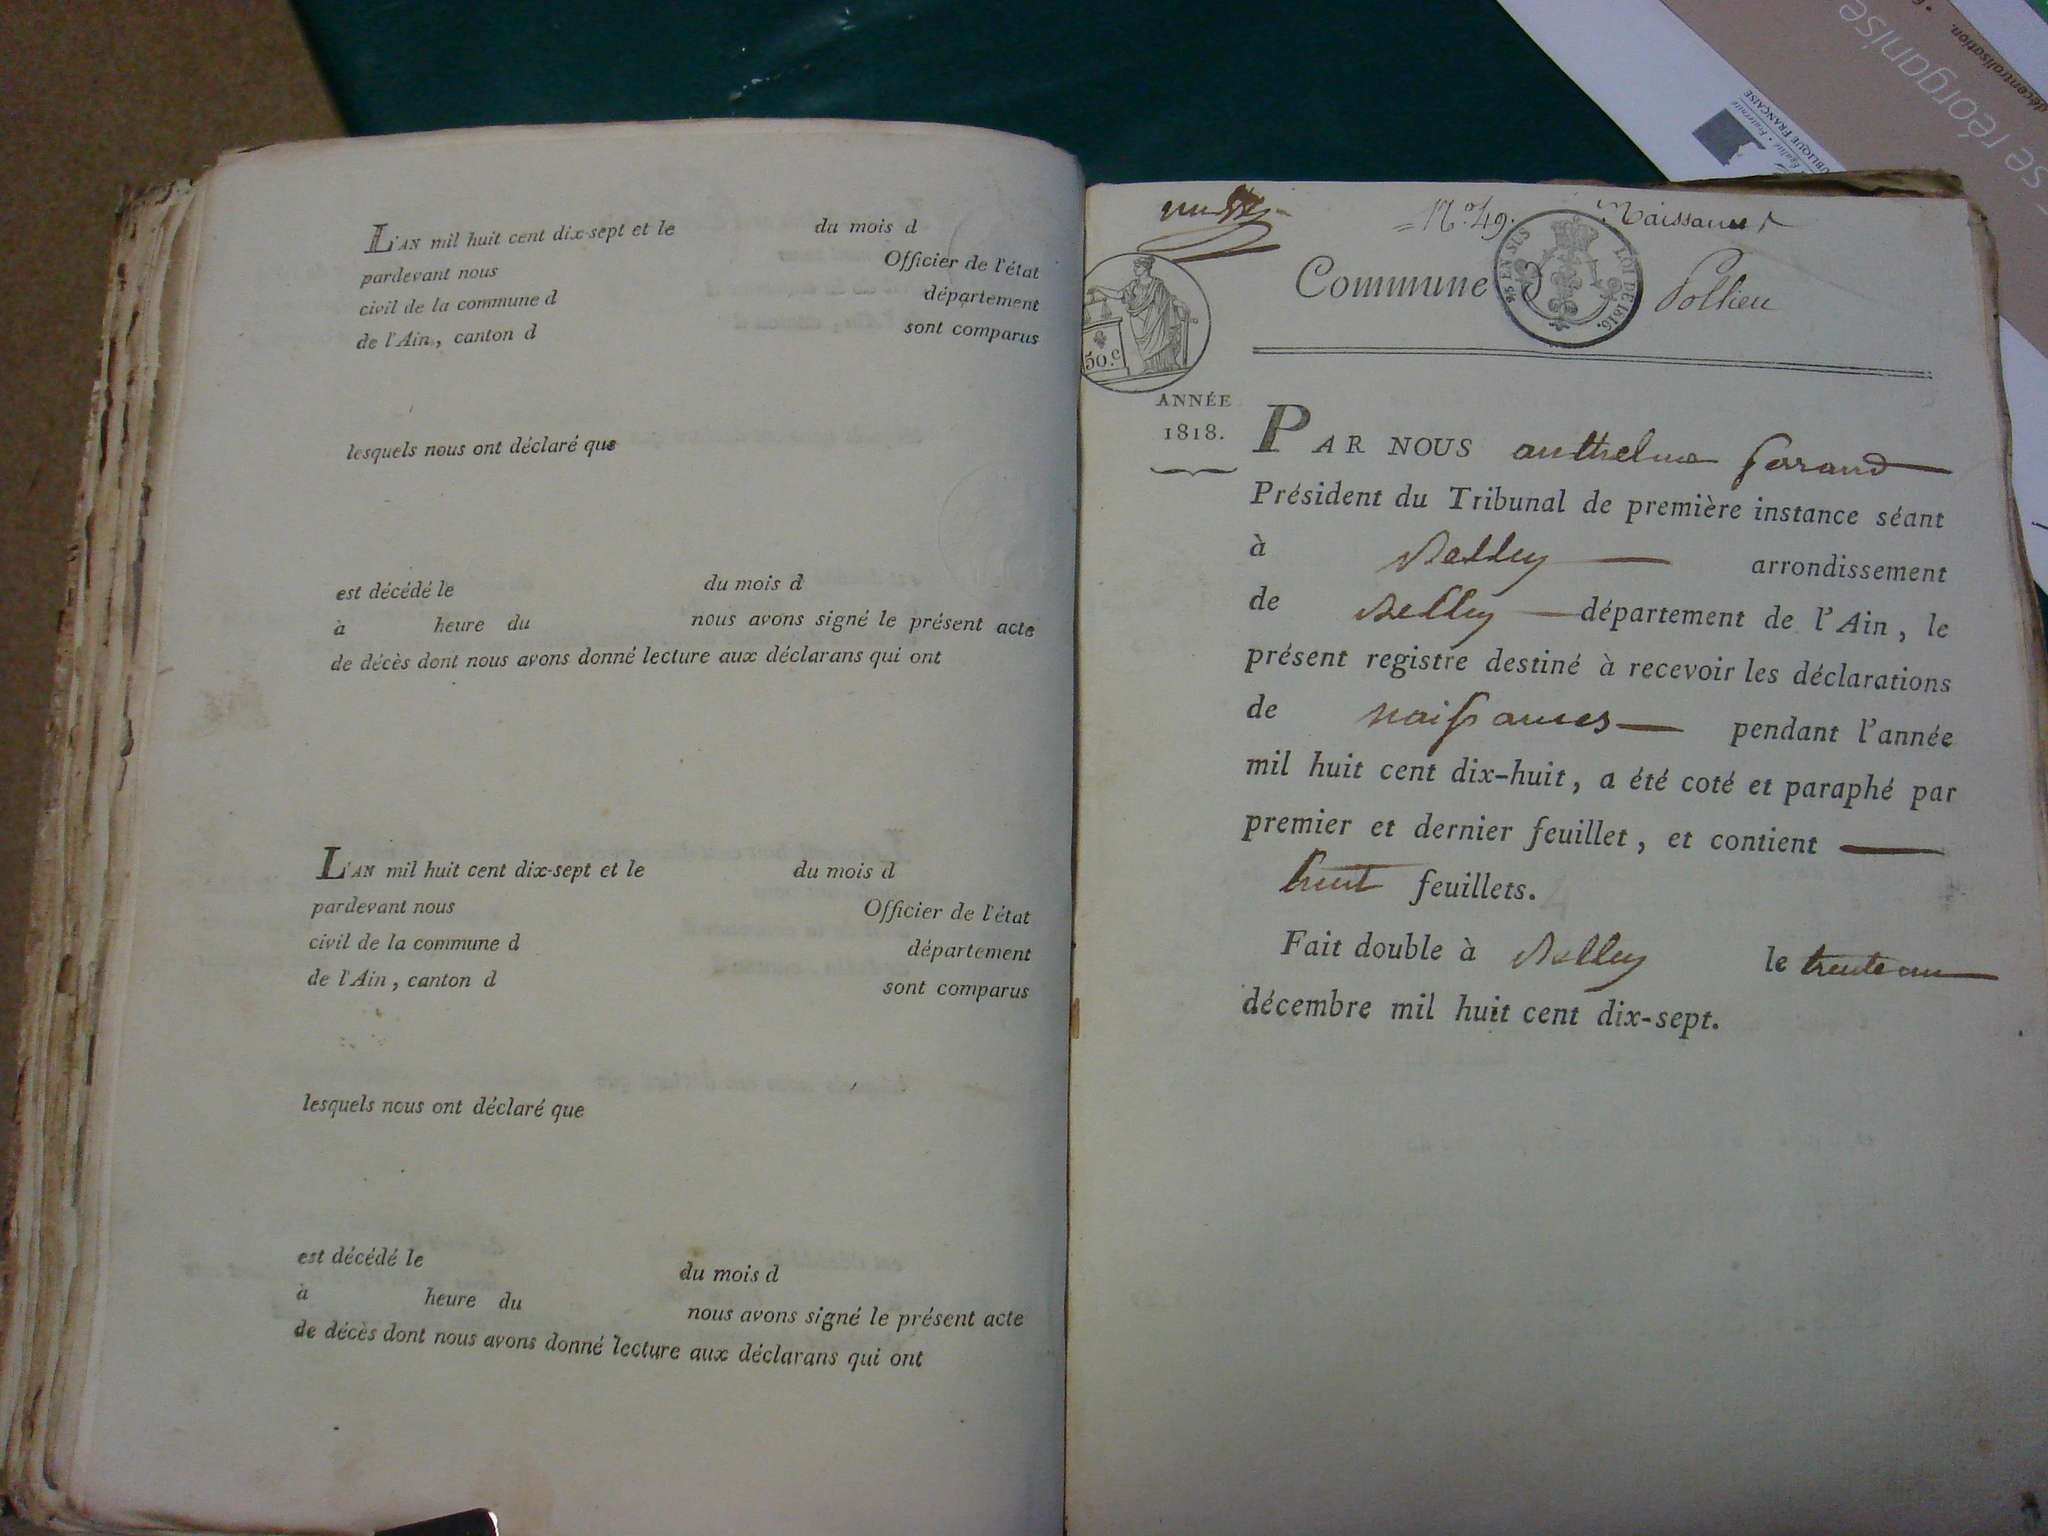 L'AN mil huit cent dix-sept et le du mois d
pardevant nous Officier de l'état
civil de la commune d département
de l'Ain, canton d sont comparus
lesquels nous ont déclaré que
est décédé le du mois d
à heure du nous avons signé le présent acte
de décès dont nous avons donné lecture aux déclarans qui ont
L'AN mil huit cent dix-sept et le du mois d
pardevant nous Officier de l'état
civil de la commune d département
de l'Ain, canton d sont comparus
lesquels nous ont déclaré que
est décédé le du mois d
à heure du nous avons signé le présent acte
de décès dont nous avons donné lecture aux déclarans qui ont
N.º 49. Naissances
Commune d Pollieu
EN SUS LOI DE 1816.
50.c
ANNÉE
1818.
PAR NOUS anthelme
Président du Tribunal de première instance séant
à Belley arrondissement
de Belley département de l'Ain, le
présent registre destiné à recevoir les déclarations
de naissances pendant l'année
mil huit cent dix-huit, a été coté et paraphé par
premier et dernier feuillet, et contient
huit feuillets.
Fait double à Belley le trente un
décembre mil huit cent dix-sept.
se réorganise
décentralisation.
Égalité • Fraternité
PUBLIQUE FRANÇAISE